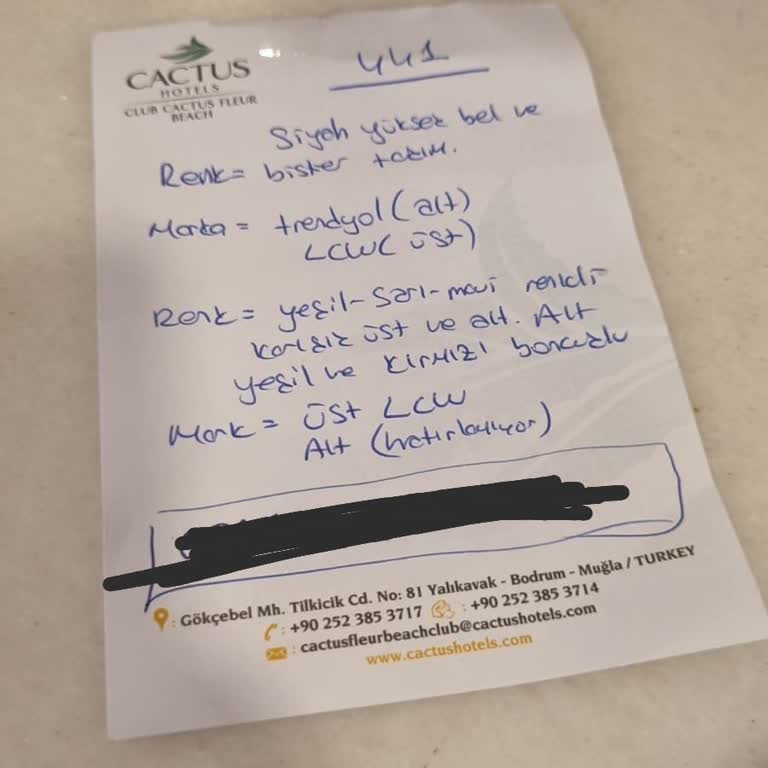 CACTUS
HOTELS
CLUB CACTUS FLEUR
BEACH
441
Siyah yüksek bel ve
Renk = bister takım.
Marka = trendyol (alt)
LCW (üst)
Renk = yeşil-sarı-mavi renkli
üst ve alt. Alt
yeşil ve kırmızı boncuklu
Mark = üst LCW
Alt (hatırlayıyor)
: Gökçebel Mh. Tilkicik Cd. No: 81 Yalıkavak - Bodrum - Muğla / TURKEY
: +90 252 385 3717 : +90 252 385 3714
: cactusfleurbeachclub@cactushotels.com
www.cactushotels.com